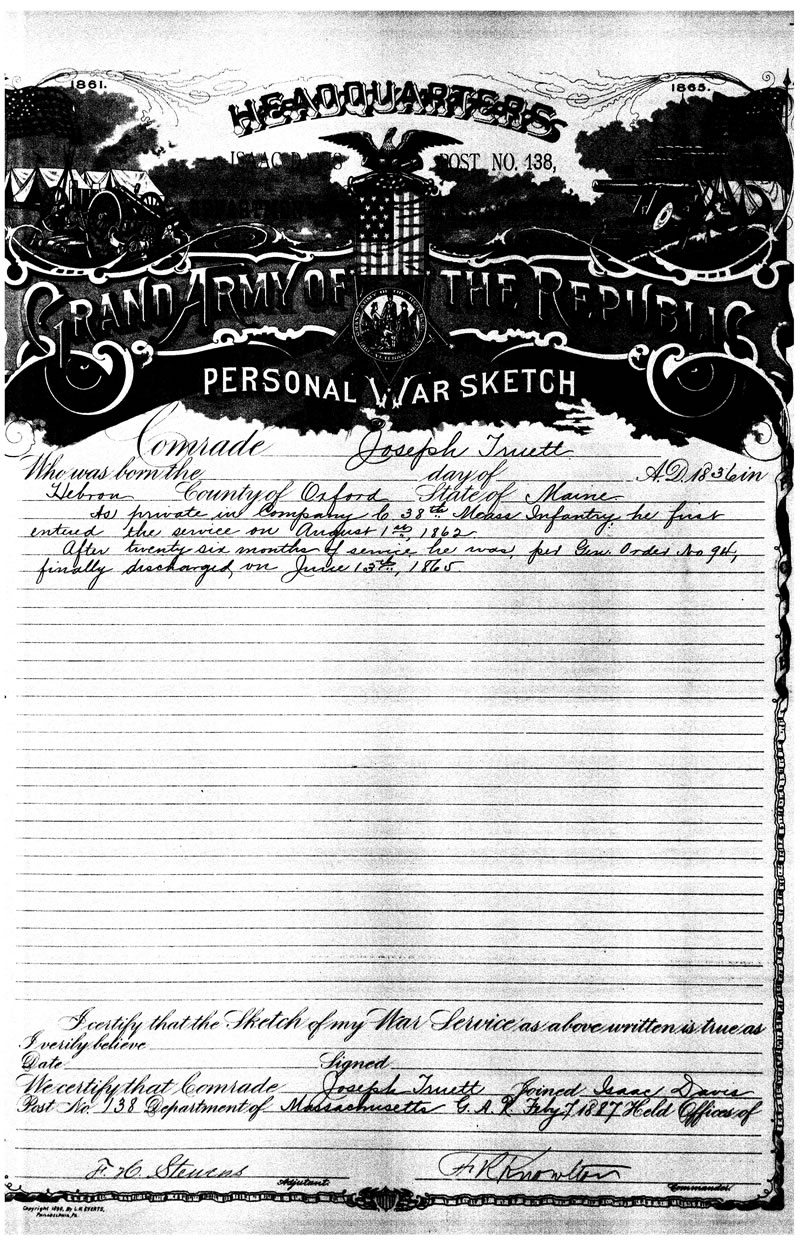 1861.
1865.
HEADQUARTERS
ISAAC DAVIS POST NO. 138,
GRAND ARMY OF THE REPUBLIC
PERSONAL WAR SKETCH
Comrade Joseph Truett
Who was born the day of A.D. 1836 in
Hebron County of Oxford State of Maine
As private in Company C 38th Mass Infantry, he first
entered the service on August 1st, 1862
After twenty six months of service he was, per Gen. Order No 94,
finally discharged, on June 13th, 1865
I certify that the Sketch of my War Service as above written is true as
I verily believe
Date Signed
We certify that Comrade Joseph Truett Joined Isaac Davis
Post No. 138 Department of Massachusetts G.A.R. Feby 7, 1887 Held Offices of
F. H. Stevens Adjutant. Knowlton Commander
Copyright 1890, By L.H. EVERTS,
PHILADELPHIA, PA.